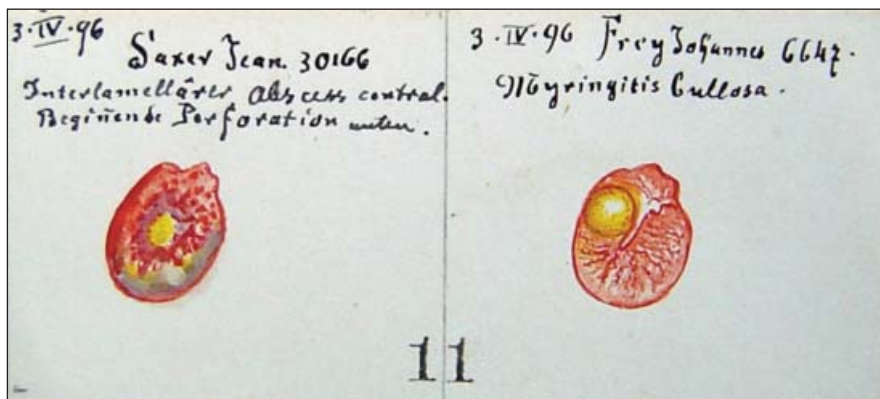 3·IV·96
Saxer Jean. 30166
Interlamellärer Abscess central.
Begin̄ende Perforation unten.
3·IV·96 Frey Johannes 6647.
Myringitis bullosa.
11